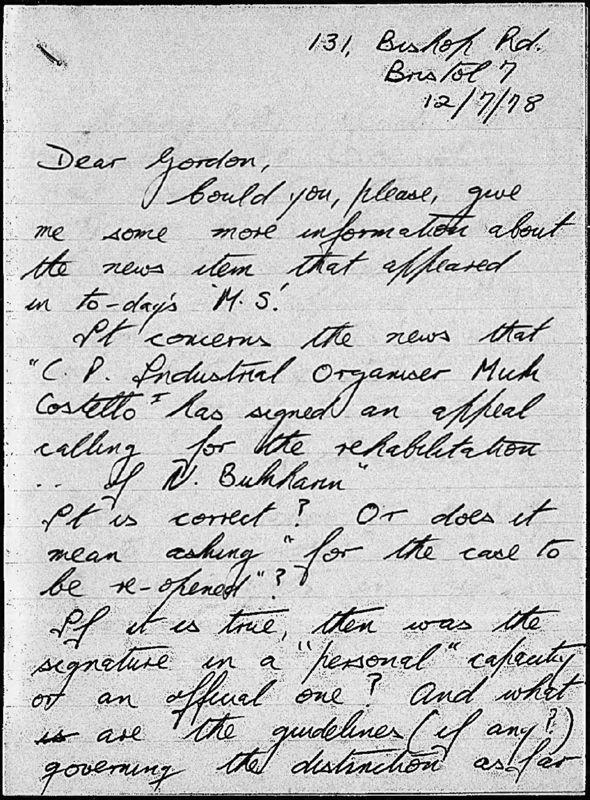 131, Bishop Rd.
Bristol 7
12/7/78
Dear Gordon,
Could you, please, give
me some more information about
the news item that appeared
in to-day's 'M.S.'
It concerns the news that
"C. P. Industrial Organiser Mick
Costello has signed an appeal
calling for the rehabilitation
.. of N. Bukharin"
It is correct? Or does it
mean asking "for the case to
be re-opened"?
If it is true, then was the
signature in a "personal" capacity
or an official one? And what
is are the guidelines (if any?)
governing the distinction as far